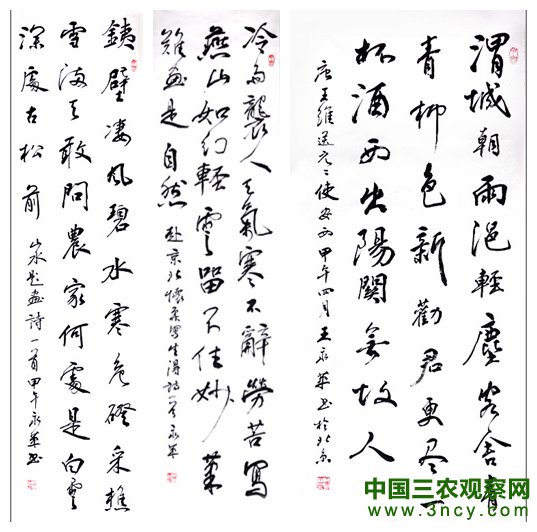 渭城朝雨浥輕塵客舍青
青柳色新勸君更尽一
杯酒西出陽関無故人
唐王維送元二使安西甲午四月王永華书於北京
冷雨襲人天氣寒不辭勞苦寫
燕山如幻輕雲留不住妙筆
難画是自然 赴京北懷柔寫生得詩一首永華
銕壁凄風碧水寒危磴采樵
雪満天敢問農家何處是白雲
深處古松前 山水題画詩一首甲午永華书
中国三农观察网
www.3ncy.com